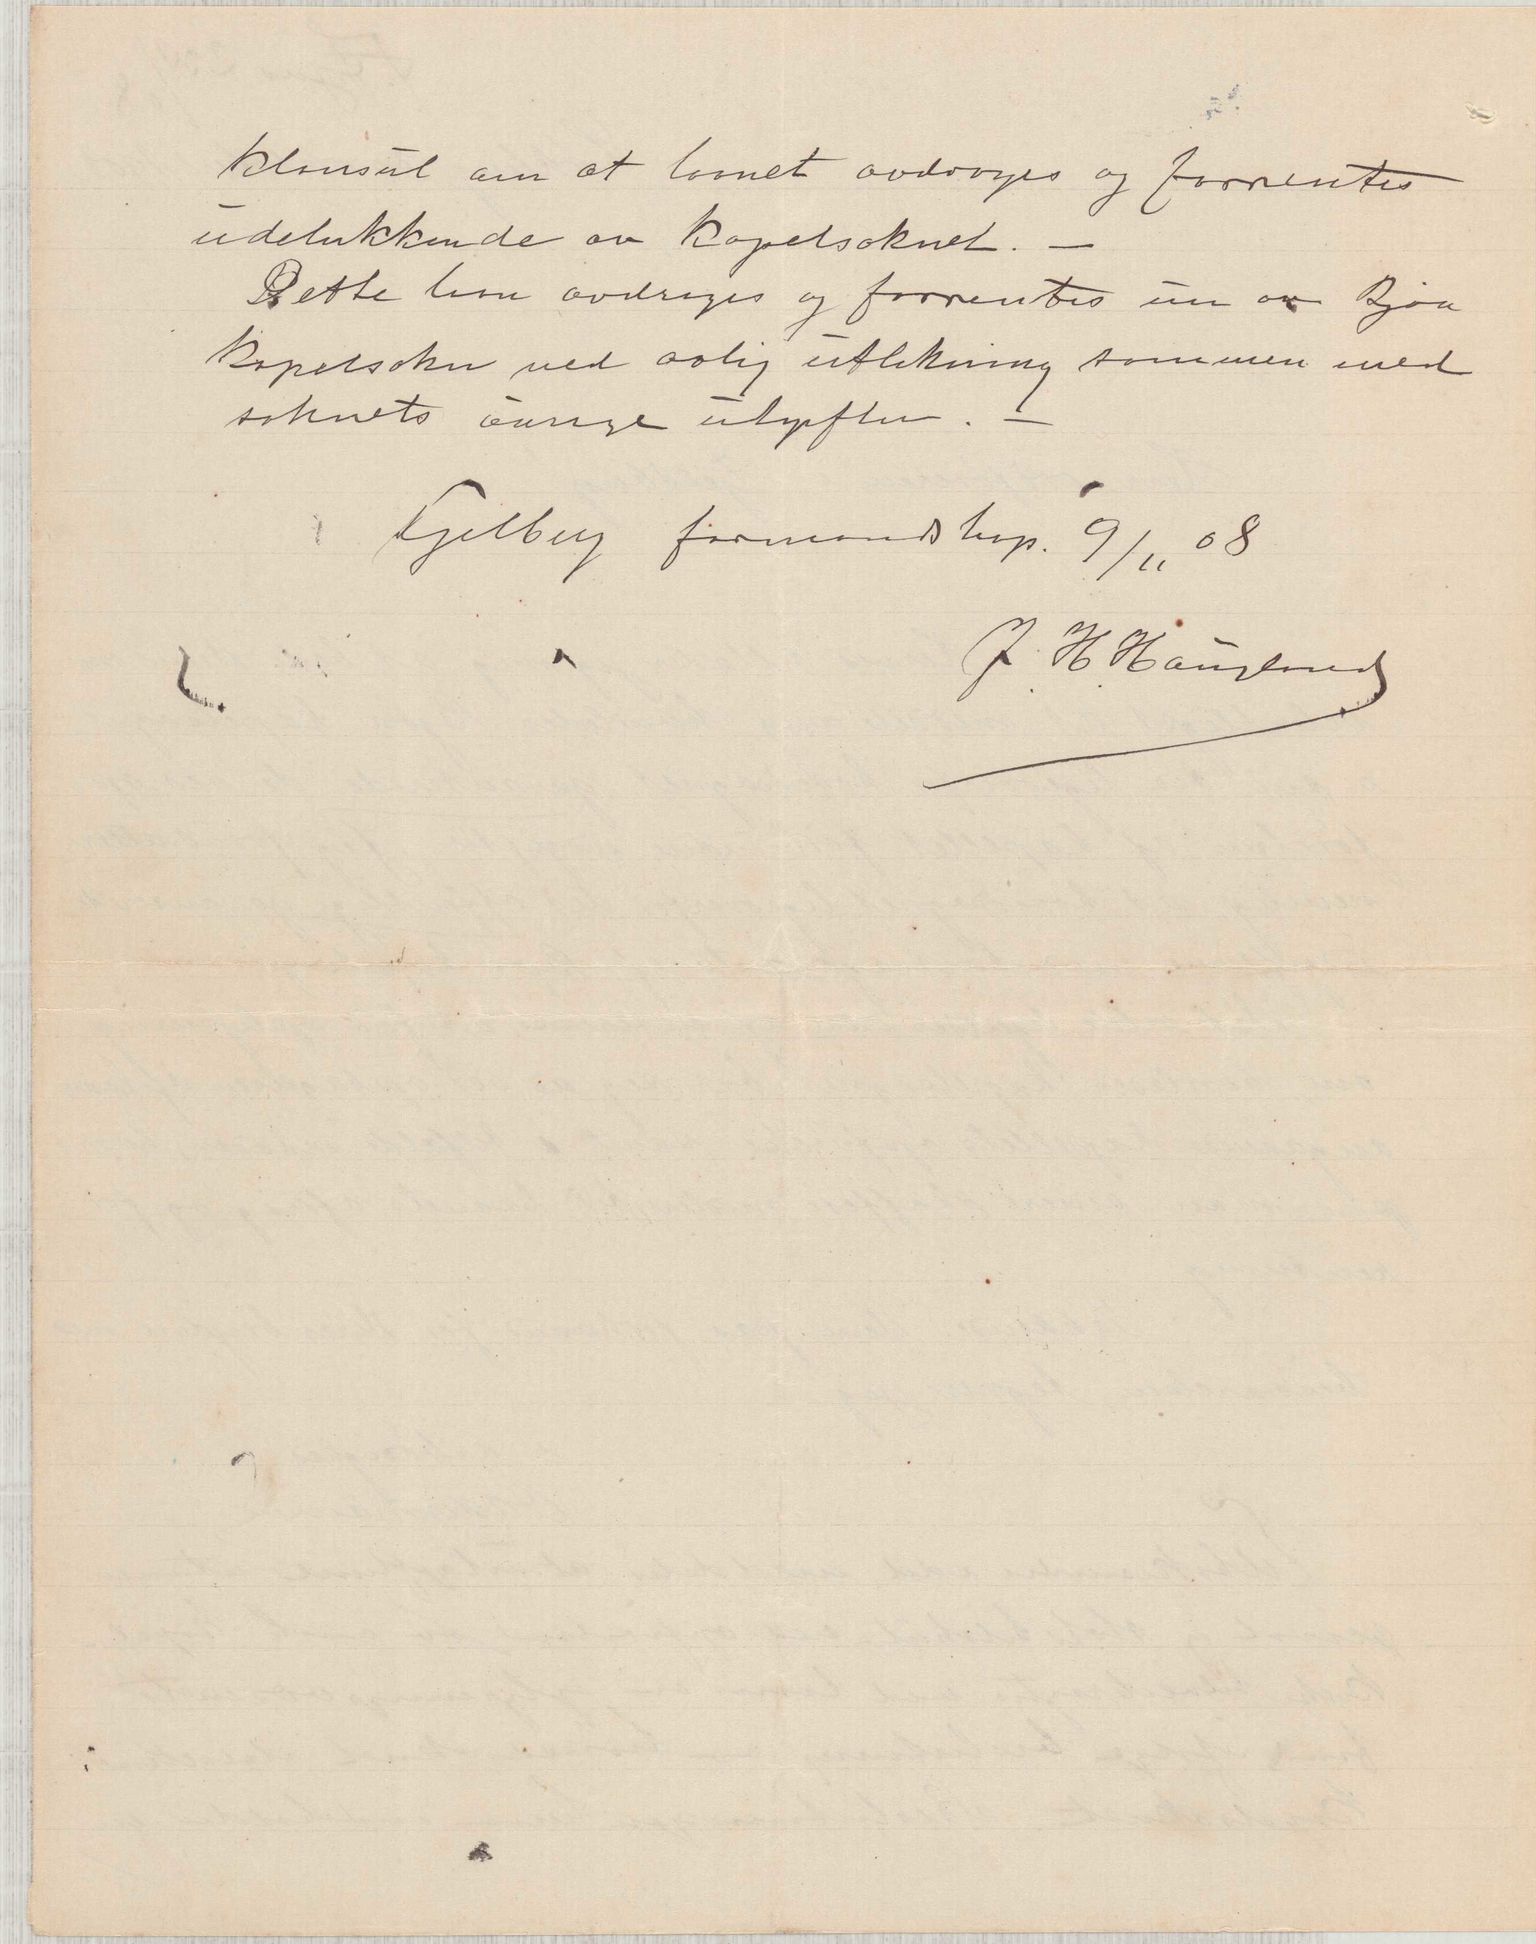 klausul om at laanet avdrages og forrentes
udelukkende av kapelsoknet. —
Dette laan avdrages og forrentes nu av Bjoa
kapelsokn ved aarlig utlikning sammen med
soknets øvrige utgifter. —
Fjelberg formandskap. 9/11 08
J. H. Haugland